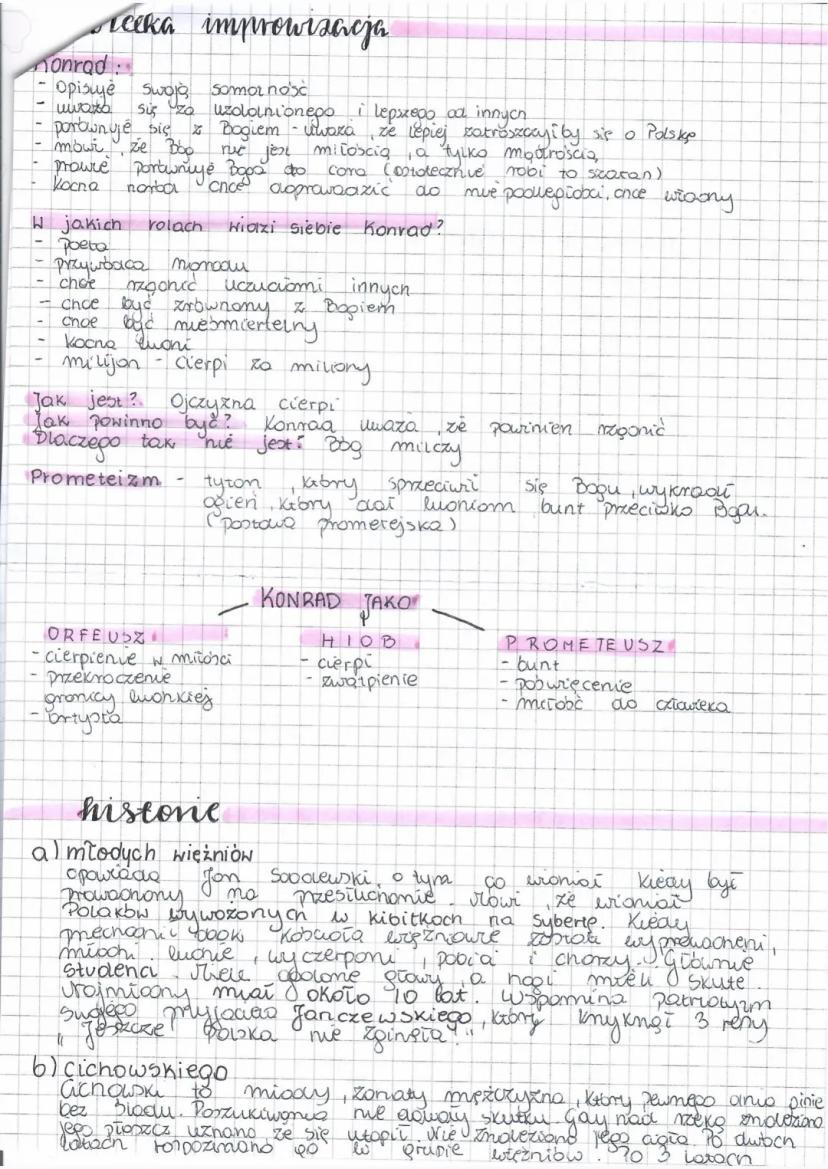 improwizacja
Konrad:
- Opisuje swoją samotność
- uważa się za uzdolnionego i lepszego od innych
- porównuje się z Bogiem - uważa, że lepiej zatroszczyłby się o Polskę
- mówi, że Bóg nie jest miłością, a tylko mądrością
- prawie porównuje Boga do cara (ostatecznie robi to szatan)
- kocha naród chce doprowadzić do niepodległości, chce władzy
W jakich rolach widzi siebie Konrad?
- poeta
- przywódca narodu
- chce rządzić uczuciami innych
- chce być zrównany z Bogiem
- chce być nieśmiertelny
- kocha ludzi
- milijon - cierpi za miliony
Jak jest? Ojczyzna cierpi
Jak powinno być? Konrad uważa, że powinien rządzić
Dlaczego tak nie jest? Bóg milczy
Prometeizm - tytan, który sprzeciwił się Bogu, wykradł
ogień, który dał ludziom bunt przeciwko Bogu.
(postawa prometejska)
KONRAD JAKO
ORFEUSZ HIOB PROMETEUSZ
- cierpienie w miłości - cierpi - bunt
- przekroczenie - zwątpienie - poświęcenie
granicy ludzkiej - miłość do człowieka
- artysta
historie
a) młodych więźniów
opowiada Jan Sobolewski, o tym co widział kiedy był
prowadzony na przesłuchanie. Mówi, że widział
Polaków wywożonych w kibitkach na Syberię. Kiedy
przechodził obok kościoła więźniowie zostali wyprowadzeni,
młodzi ludzie, wyczerpani, pobici i chorzy. Głównie
studenci. Mieli golone głowy, a nogi mieli skute.
Najmłodszy miał około 10 lat. Wspomina patriotyzm
swojego przyjaciela Janczewskiego, który krzyknął 3 razy
"Jeszcze Polska nie zginęła!"
b) cichowskiego
Cichowski to młody, żonaty mężczyzna, który pewnego dnia ginie
bez śladu. Poszukiwania nie dawały skutku. Gdy nad rzeką znaleziono
jego płaszcz uznano że się utopił. Nie znaleziono jego ciała. Po dwóch
latach rozpoznano go w grupie więźniów. Po 3 latach